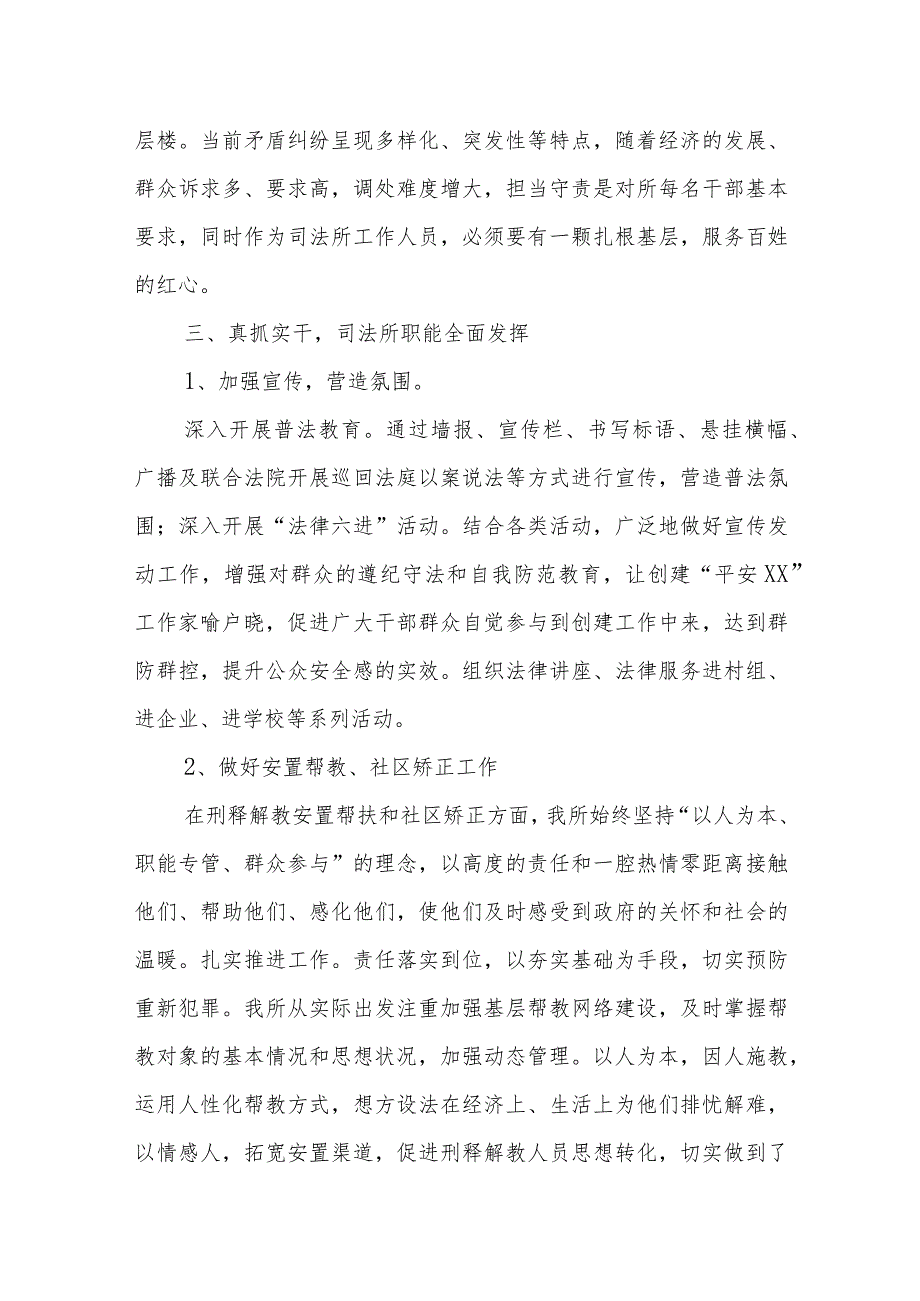 层楼。当前矛盾纠纷呈现多样化、突发性等特点，随着经济的发展、
群众诉求多、要求高，调处难度增大，担当守责是对所每名干部基本
要求，同时作为司法所工作人员，必须要有一颗扎根基层，服务百姓
的红心。
三、真抓实干，司法所职能全面发挥
1、加强宣传，营造氛围。
深入开展普法教育。通过墙报、宣传栏、书写标语、悬挂横幅、
广播及联合法院开展巡回法庭以案说法等方式进行宣传，营造普法氛
围；深入开展“法律六进”活动。结合各类活动，广泛地做好宣传发
动工作，增强对群众的遵纪守法和自我防范教育，让创建“平安XX”
工作家喻户晓，促进广大干部群众自觉参与到创建工作中来，达到群
防群控，提升公众安全感的实效。组织法律讲座、法律服务进村组、
进企业、进学校等系列活动。
2、做好安置帮教、社区矫正工作
在刑释解教安置帮扶和社区矫正方面，我所始终坚持“以人为本、
职能专管、群众参与”的理念，以高度的责任和一腔热情零距离接触
他们、帮助他们、感化他们，使他们及时感受到政府的关怀和社会的
温暖。扎实推进工作。责任落实到位，以夯实基础为手段，切实预防
重新犯罪。我所从实际出发注重加强基层帮教网络建设，及时掌握帮
教对象的基本情况和思想状况，加强动态管理。以人为本，因人施教，
运用人性化帮教方式，想方设法在经济上、生活上为他们排忧解难，
以情感人，拓宽安置渠道，促进刑释解教人员思想转化，切实做到了